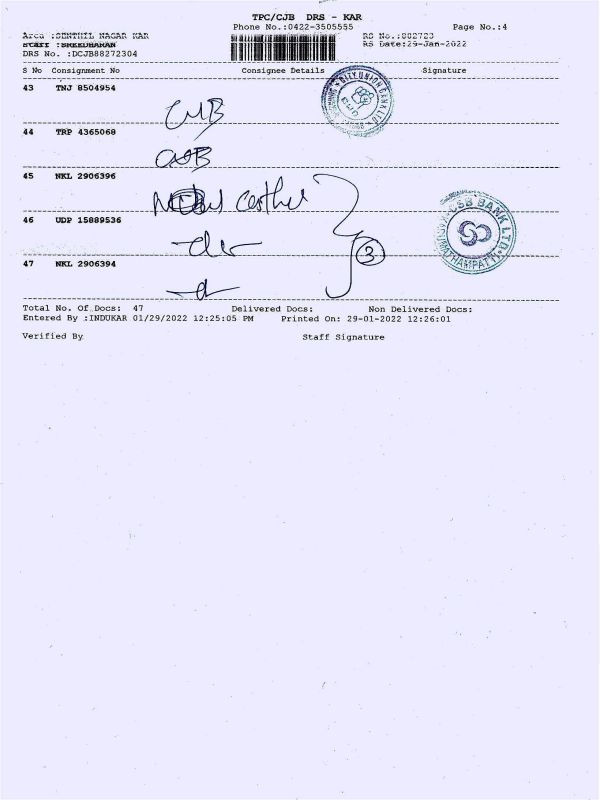 TPC/CJB DRS - KAR
Phone No.:0422-3505555 Page No.:4
Area :SENTHIL NAGAR KAR RS No.:882723
Staff :SREEDHARAN RS Date:29-Jan-2022
DRS No. :DCJB88272304
S No Consignment No Consignee Details Signature
43 TNJ 8504954
CUB
CITY UNION BANK LTD
44 TRP 4365068
CUB
45 NKL 2906396
46 UDP 15889536
3
CSB BANK LTD
47 NKL 2906394
Total No. Of Docs: 47 Delivered Docs: Non Delivered Docs:
Entered By :INDUKAR 01/29/2022 12:25:05 PM Printed On: 29-01-2022 12:26:01
Verified By Staff Signature